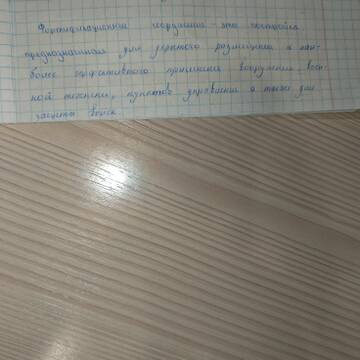 Фортификационные сооружения это постройка
предназначенная для укрытого размещения и наи-
более эффективного применения вооружения, воен-
ной техники, пунктов управления а также для
защиты войск.